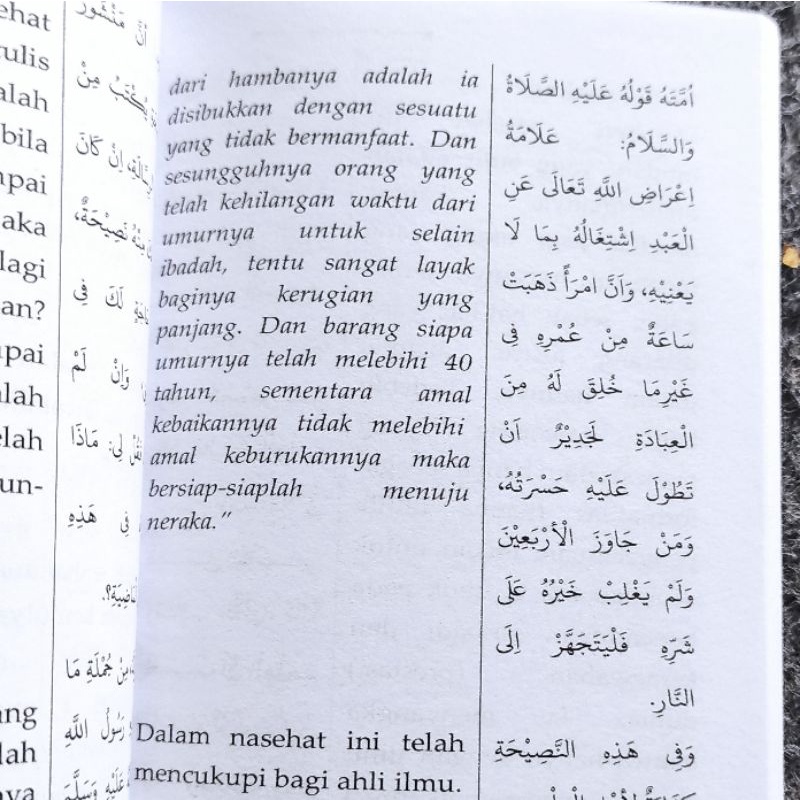 ehat
ulis
alah
bila
npai
aka
lagi
an?
pai
lah
elah
un-
ang
lah
ya
اَنَّ مَنْشُوْرَ
يُكْتَبُ مِنْ
اِنْ كَانَ
مِنْهُ نَصِيْحَةٌ،
لَكَ فِى
وَاِنْ لَمْ
لِى: مَاذَا
فِى هَذِهِ
مِنْ جُمْلَةِ مَا
رَسُوْلُ اللَّهِ
عَلَيْهِ وَسَلَّمَ
dari hambanya adalah ia
disibukkan dengan sesuatu
yang tidak bermanfaat. Dan
sesungguhnya orang yang
telah kehilangan waktu dari
umurnya untuk selain
ibadah, tentu sangat layak
baginya kerugian yang
panjang. Dan barang siapa
umurnya telah melebihi 40
tahun, sementara amal
kebaikannya tidak melebihi
amal keburukannya maka
bersiap-siaplah menuju
neraka."
Dalam nasehat ini telah
mencukupi bagi ahli ilmu.
اُمَّتَهُ قَوْلُهُ عَلَيْهِ الصَّلَاةُ
وَالسَّلَامُ: عَلَامَةُ
اِعْرَاضِ اللَّهِ تَعَالَى عَنِ
الْعَبْدِ اِشْتِغَالُهُ بِمَا لَا
يَعْنِيْهِ، وَاَنَّ امْرَأً ذَهَبَتْ
سَاعَةٌ مِنْ عُمْرِهِ فِى
غَيْرِمَا خُلِقَ لَهُ مِنَ
الْعِبَادَةِ لَجَدِيْرٌ اَنْ
تَطُوْلَ عَلَيْهِ حَسْرَتُهُ،
وَمَنْ جَاوَزَ الْأَرْبَعِيْنَ
وَلَمْ يَغْلِبْ خَيْرُهُ عَلَى
شَرِّهِ فَلْيَتَجَهَّزْ اِلَى
النَّارِ.
وَفِى هَذِهِ النَّصِيْحَةِ